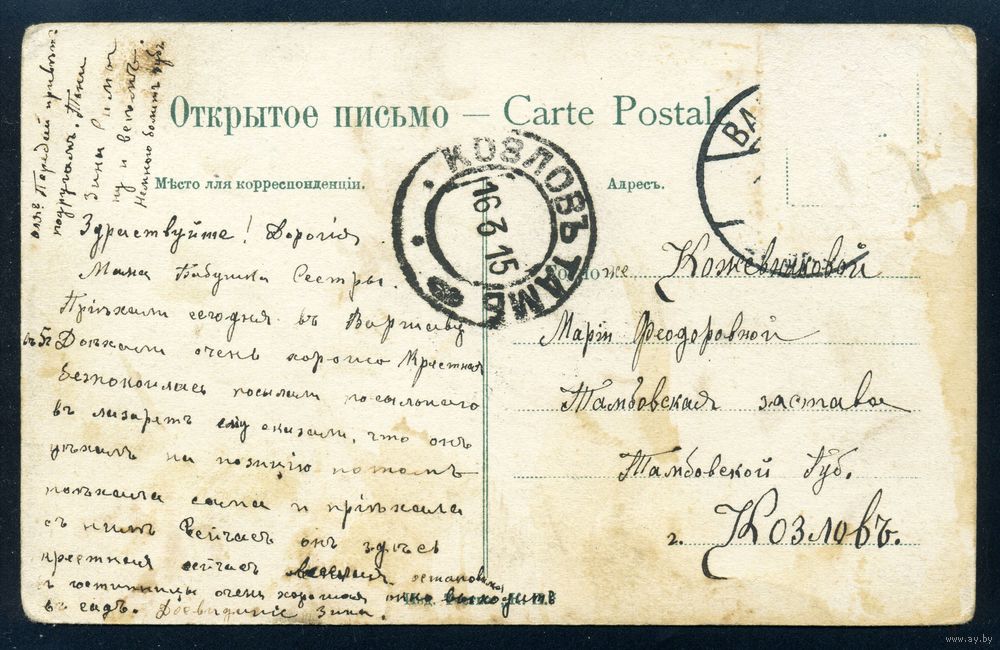 Открытое письмо — Carte Postale
Мѣсто для корреспонденціи.
Адресъ.
КОЗЛОВЪ ТАМБ
16 3 15
ВА
Передай привѣтъ
подругамъ.
Зины
ну и всѣмъ.
Немного болитъ зубъ
Здраствуйте! Дорогія
Мама Бабушка Сестры.
Пріѣхали сегодня въ Варшаву
Доѣхали очень хорошо Крестная
безпокоилась посылали посыльнаго
въ лазаретъ ему сказали, что онъ
уѣхалъ на позицію потомъ
поѣхала сама и пріѣхала
съ нимъ Сейчасъ онъ здѣсь
крестная сейчас
гостиницы очень хорошая окно выходитъ
въ садъ. Досвиданіе Зина.
Кожевниковой
Маріи Феодоровной
Тамбовская застава
Тамбовской Губ.
г. Козловъ.
www.ay.by